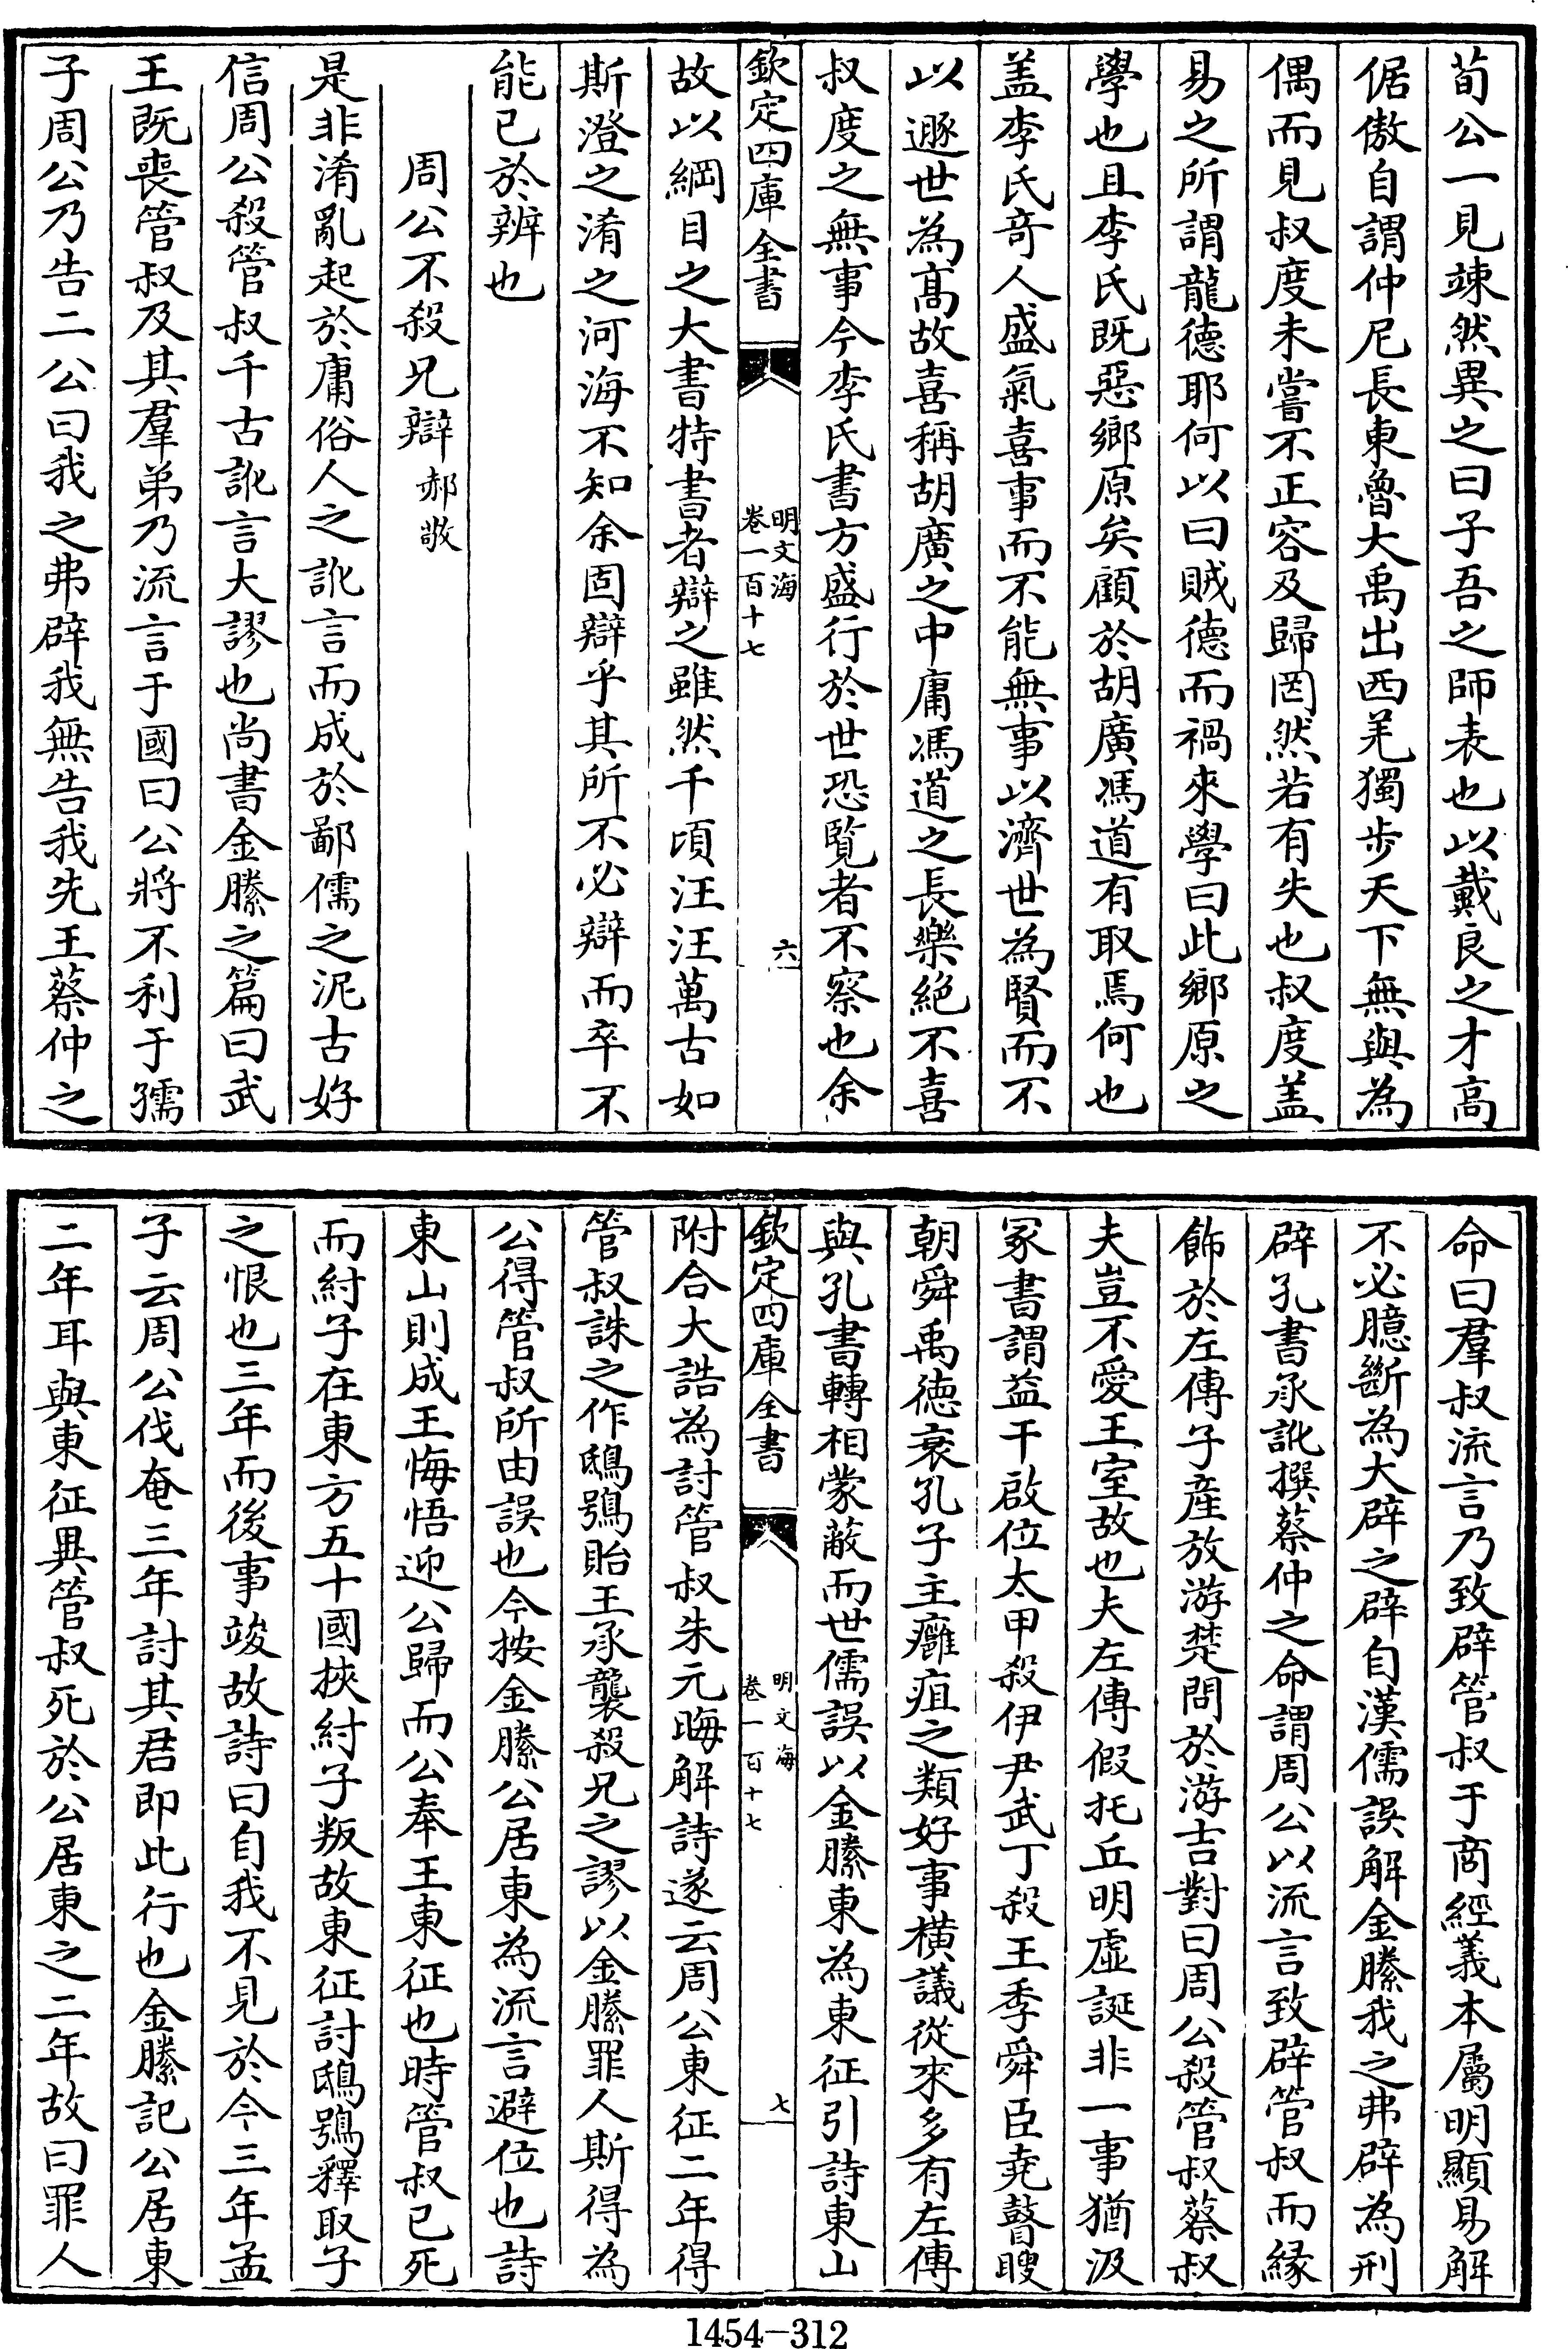 荀公一見竦然異之曰子吾之師表也以戴良之才高
倨傲自謂仲尼長東魯大禹出西羌獨步天下無與為
偶而見叔度未嘗不正容及歸罔然若有失也叔度盖
易之所謂龍德耶何以曰賊德而禍來學曰此鄉原之
學也且李氏既惡鄉原矣顧於胡廣馮道有取焉何也
盖李氏竒人盛氣喜事而不能無事以濟世為賢而不
以遯世為髙故喜稱胡廣之中庸馮道之長樂絶不喜
叔度之無事今李氏書方盛行於世恐覧者不察也余
欽定四庫全書
明文海
卷一百十七
六
故以綱目之大書特書者辯之雖然千頃汪汪萬古如
斯澄之淆之河海不知余固辯乎其所不必辯而卒不
能已於辨也
周公不殺兄辯郝敬
是非淆亂起於庸俗人之訛言而成於鄙儒之泥古好
信周公殺管叔千古訛言大謬也尚書金縢之篇曰武
王既喪管叔及其羣弟乃流言于國曰公將不利于孺
子周公乃告二公曰我之弗辟我無告我先王蔡仲之
命曰羣叔流言乃致辟管叔于商經義本屬明顯易解
不必臆斷為大辟之辟自漢儒誤解金縢我之弗辟為刑
辟孔書承訛撰蔡仲之命謂周公以流言致辟管叔而緣
飾於左傳子産放游楚問於游吉對曰周公殺管叔蔡叔
夫豈不愛王室故也夫左傳假托丘明虛誕非一事猶汲
冢書謂益干啟位太甲殺伊尹武丁殺王季舜臣堯瞽瞍
朝舜禹徳衰孔子主癰疽之類好事橫議從來多有左傳
與孔書轉相蒙蔽而世儒誤以金縢東為東征引詩東山
欽定四庫全書
明文海
卷一百十七
七
附合大誥為討管叔朱元晦解詩遂云周公東征二年得
管叔誅之作鴟鴞貽王承襲殺兄之謬以金縢罪人斯得為
公得管叔所由誤也今按金縢公居東為流言避位也詩
東山則成王悔悟迎公歸而公奉王東征也時管叔已死
而紂子在東方五十國挾紂子叛故東征討鴟鴞釋取子
之恨也三年而後事竣故詩曰自我不見於今三年孟
子云周公伐奄三年討其君即此行也金縢記公居東
二年耳與東征異管叔死於公居東之二年故曰罪人
1454-312